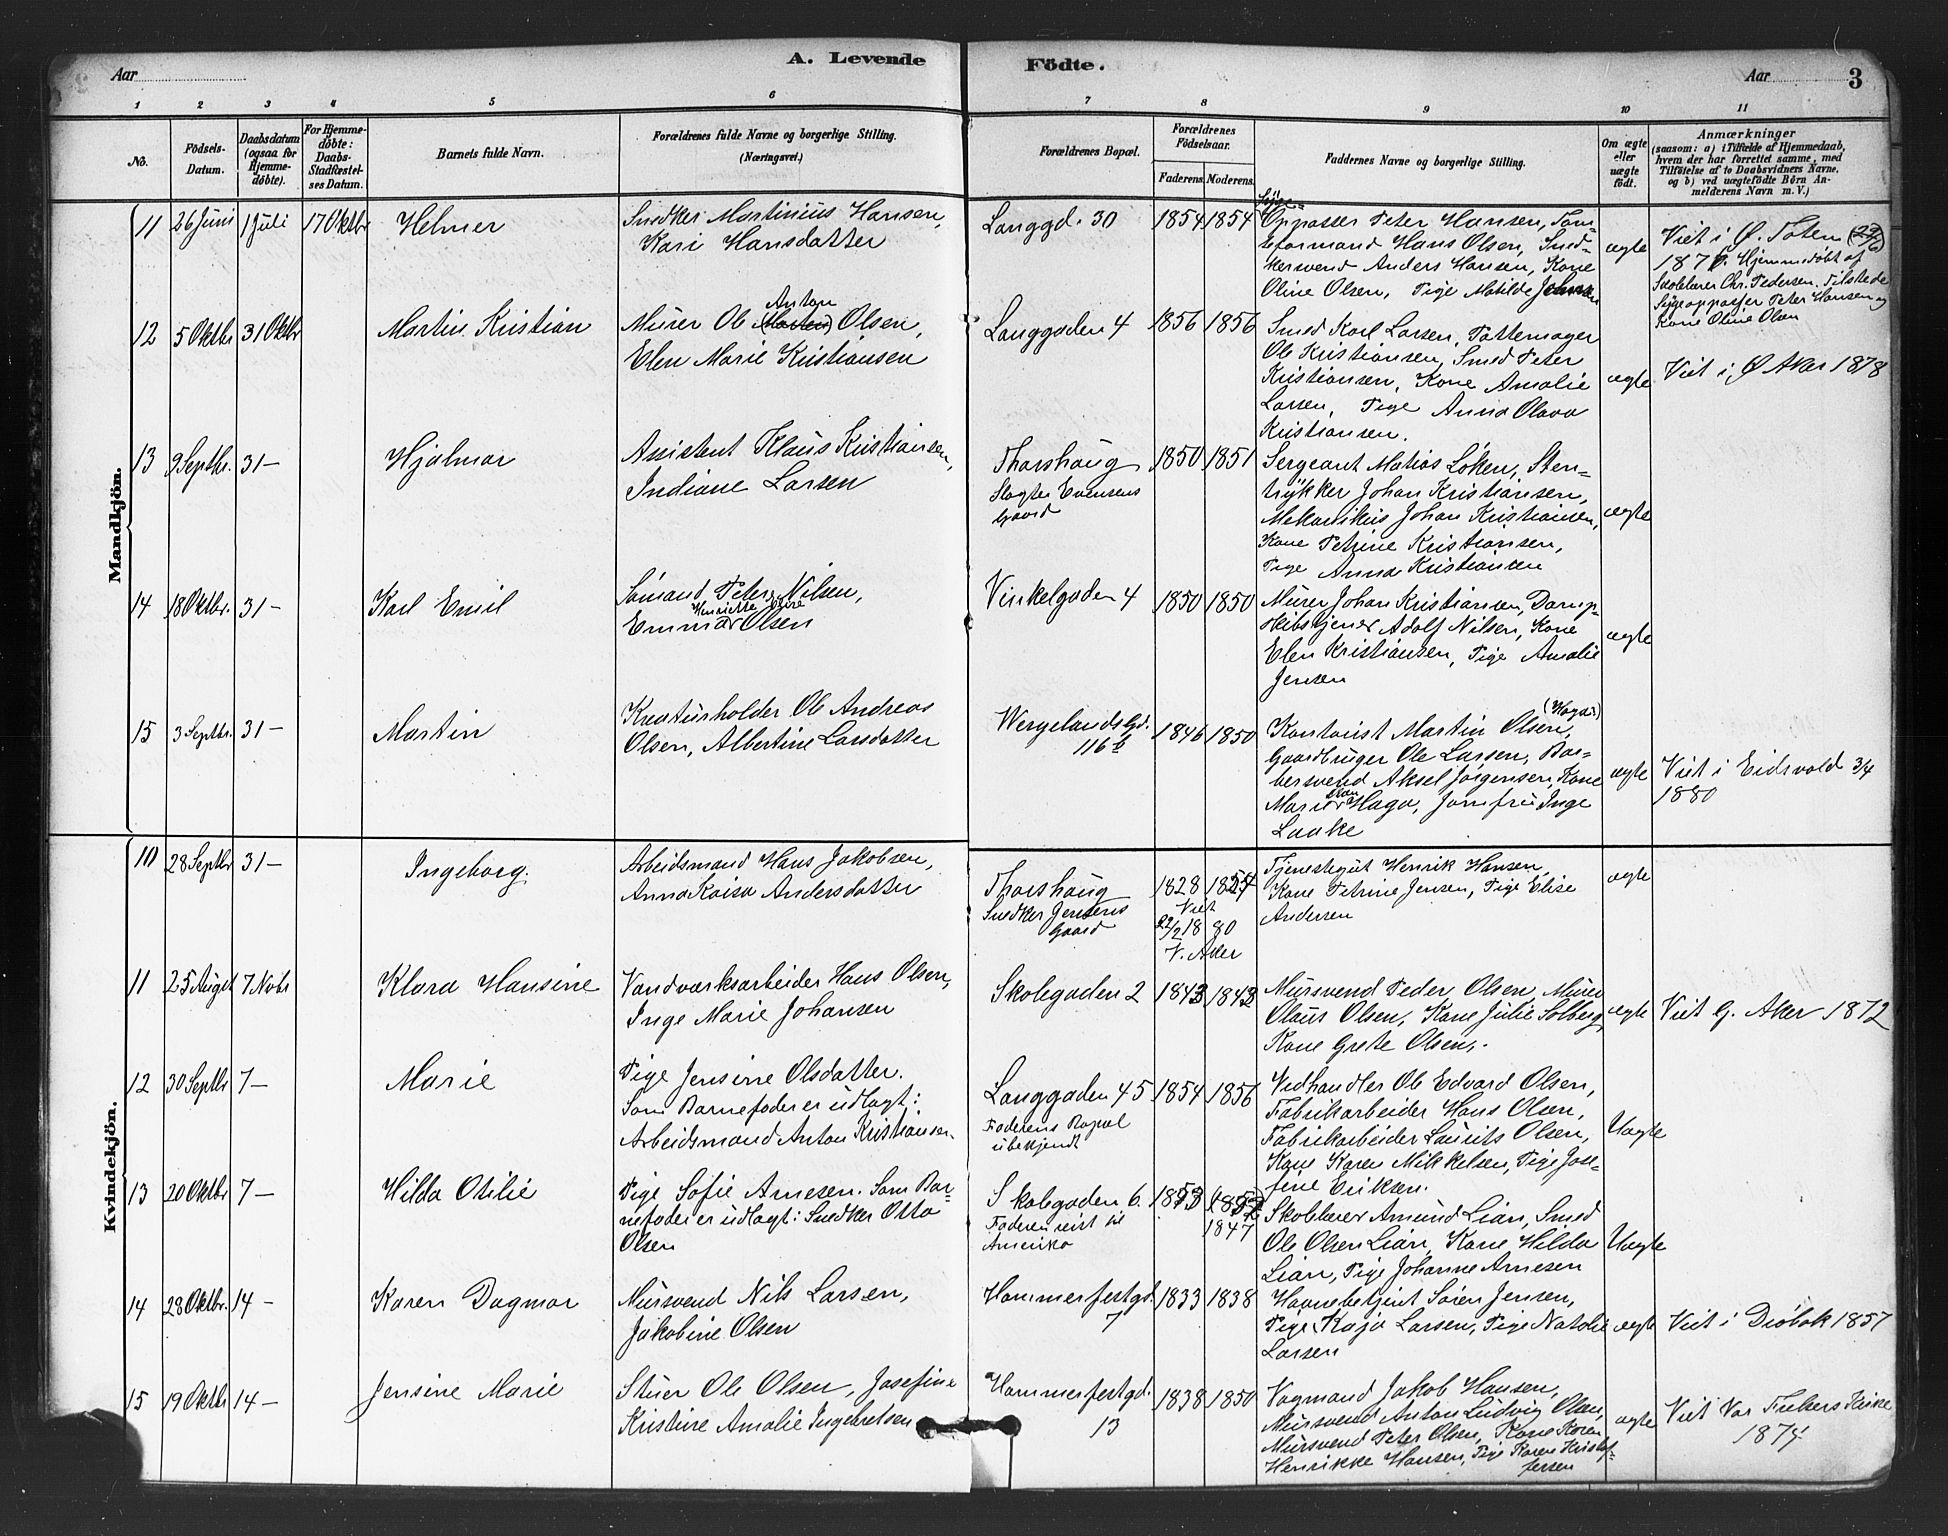 Aar
A. Levende Födte.
Aar
3
1 2 3 4 5 6 7 8 9 10 11
No.
Födsels-Datum.
Daabsdatum (ogsaa for Hjemme-døbte).
For Hjemme-døbte: Daabs-Stadfæstel-ses Datum.
Barnets fulde Navn.
Forældrenes fulde Navne og borgerlige Stilling. (Næringsvei.)
Forældrenes Bopæl.
Forældrenes Födselsaar.
Faderens. Moderens.
Faddernes Navne og borgerlige Stilling.
Om ægte eller uægte født.
Anmærkninger
(saasom: a) i Tilfælde af Hjemmedaab, hvem der har forrettet samme, med Tilföielse af to Daabsvidners Navne, og b) ved uægtefödte Börn An-melderens Navn m. V.)
Mandkjön.
11 26 Juni 1 Juli 17 Oktbr Helmer
Snedker Martinius Hansen,
Kari Hansdatter
Langgd. 30 1854 1854
Syge-
Oppasser Peter Hansen, Tom-
teformand Hans Olsen, Sned-
kersvend Anders Hansen, Kone
Oline Olsen, Pige Matilde
ægte
Viet i Ø. Toten
187 . Hjemmedøbt af
Skolelærer Chr. Pedersen. Tilstede
Sygeoppasser Peter Hansen og
Kone Oline Olsen
12 5 Oktbr 31 Oktbr Martin Kristian
Murer Ole (Marten) Anton Olsen,
Elen Marie Kristiansen
Langgaden 4 1856 1856
Smed Karl Larsen, Pottemager
Ole Kristiansen, Smed Peter
Kristiansen, Kone Amalie
Larsen, Pige Anna Olava
Kristiansen.
ægte
Viet i Ø Aker 1878
13 9 Septbr. 31 — Hjalmar
Assistent Klaus Kristiansen,
Indiane Larsen
Thorshaug
Slagter Evensens
Gaard
1850 1851
Sergeant Matias Løken, Sten-
trykker Johan Kristiansen,
Mekanikus Johan Kristiansen,
Kone Petrine Kristiansen,
Pige Anna Kristiansen
ægte
14 18 Oktbr. 31 — Karl Emil
Sømand Peter Nilsen,
Henriette Oline
Emma Olsen
Vinkelgaden 4 1850 1850
Murer Johan Kristiansen, Damp-
skibstjener Adolf Nilsen, Kone
Elen Kristiansen, Pige Amalie
Jensen
ægte
15 3 Septbr. 31 — Martin
Kreaturholder Ole Andreas
Olsen, Albertine Larsdatter
Wergelandsgd.
116 b
1846 1850
(Haga)
Kontorist Martin Olsen,
Gaardbruger Ole Larsen, Bar-
bersvend Aksel Jørgensen, Kone
Marie Haga, Jomfru Inge
Laake
ægte
Viet i Eidsvold 3/4
1880
Kvindekjön.
10 28 Septbr 31 — Ingeborg.
Arbeidsmand Hans Jakobsen,
Anna Kaisa Andersdatter
Thorshaug
Snedker Jensens
Gaard
1828
Viet
22/2 18 80
V. Aker
Tjenestegut Henrik Hansen,
Kone Petrine Jensen, Pige Elise
Andersen
ægte
11 25 Augst 7 Novbr Klara Hansine
Vandværksarbeider Hans Olsen,
Inge Marie Johansen
Skolegaden 2 1843 1843
Mursvend Peder Olsen, Murer
Olaus Olsen, Kone Julie Solberg,
Kone Grete Olsen.
ægte
Viet G. Aker 1872
12 30 Septbr 7 — Marie
Pige Jensine Olsdatter.
Som Barnefader er udlagt:
Arbeidsmand Anton Kristiansen.
Langgaden 45
Faderens Bopæl
ubekjendt
1854 1856
Vedhandler Ole Edvard Olsen,
Fabrikarbeider Hans Olsen,
Fabrikarbeider Laurits Olsen,
Kone Karen Mikkelsen, Pige Jose-
fine Eriksen.
Uægte
13 20 Oktbr 7 — Hilda Otilie
Pige Sofie Arnesen. Som Bar-
nefader er udlagt: Snedker Otto
Olsen
Skolegaden 6.
Faderen reist til
Amerika
1853
1847
Skolelærer Amund Lian, Smed
Ole Olsen Lian, Kone Hilda
Lian, Pige Johanne Arnesen
Uægte
14 28 Oktbr. 14 — Karen Dagmar
Mursvend Nils Larsen,
Jakobine Olsen
Hammerfestgd.
7
1833 1838
Havnebetjent Søren Jensen,
Pige Kaja Larsen, Pige Natalie
Larsen
ægte
Viet i Drøbak 1857
15 19 Oktbr 14 — Jensine Marie
Stuer Ole Olsen, Josefine
Kristine Amalie Ingebretsen
Hammerfestgd.
13
1838 1850
Vognmand Jakob Hansen,
Mursvend Anton Ludvig Olsen,
Mursvend Peter Olsen, Kone Karen
Henrikke Hansen, Pige Karen Kristof-
fersen
ægte
Viet Vor Frelsers Kirke
1874